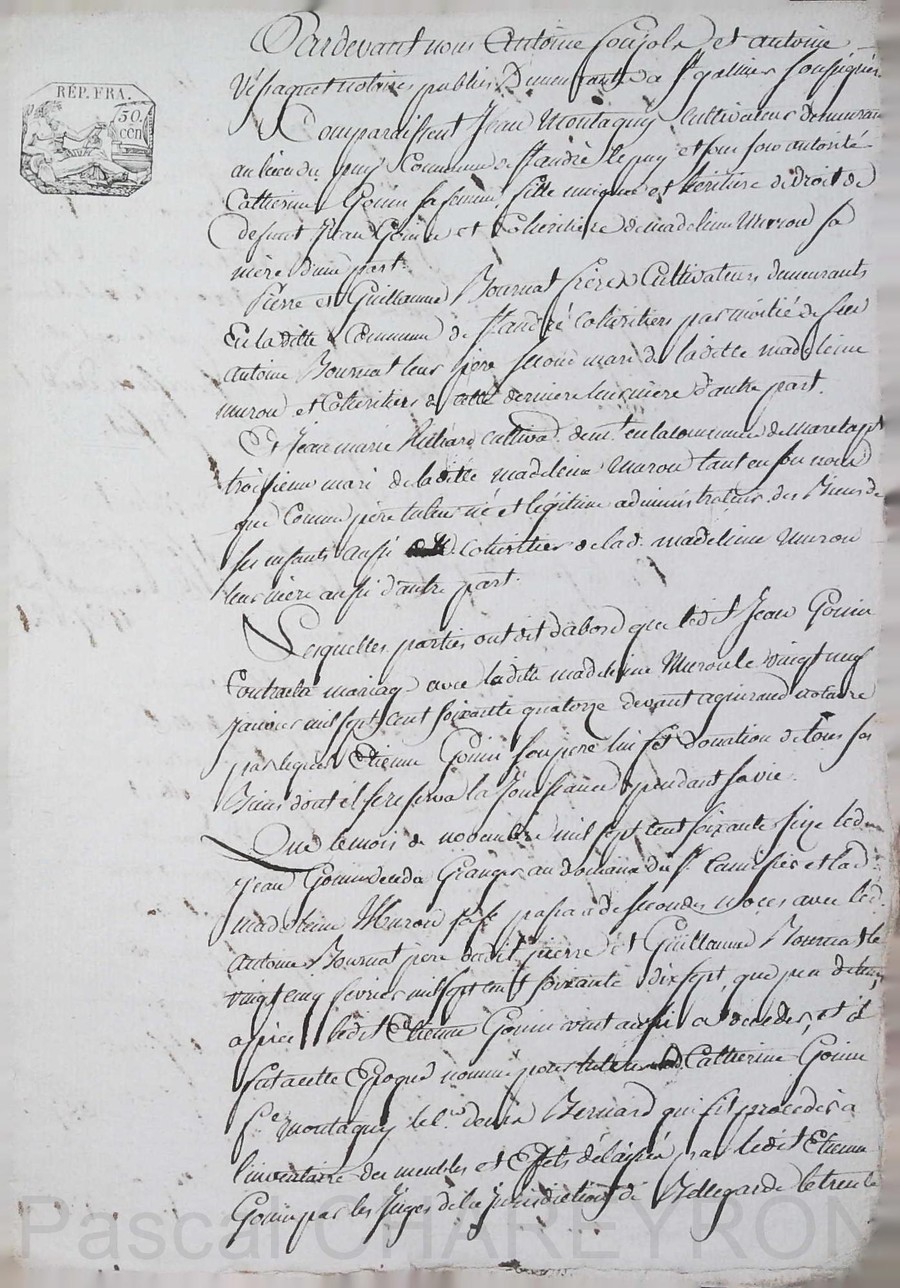 RÉP. FRA.
50.
cen
Pardevant nous Antoine Coujola et antoine
notaires publics Demeurants a St galmier soussignés
Comparaissent Jean Montagny Cultivateur demeurant
au lieu du puy Commune de St andré le puy et sous son autorité
Catherine Gonin sa femme, fille unique et héritiere de droit de
defunt Jean Gonin et Coheritiere de madeleine Muron sa
mère d'une part.
Pierre et Guillaume Bournat frères Cultivateurs demeurants
En la ditte Commune de St andré coheritiers par moitié de feu
antoine Bournat leur père second mari de laditte madeleine
muron et Coheritiers de cette derniere leur mere d'autre part.
Et Jean marie cultiva. demt. en la commune de
troisieme mari de laditte madeleine muron tant en son nom
que Comme père tuteur né et légitime administrateur des Biens de
ses enfants aussi coheritier de lad. madeleine muron
leur mère aussi d'autre part.
Lesquelles parties ont dit d'abord que ledit Jean Gonin
Contracta mariage avec laditte madeleine Muron le vingt neuf
janvier mil sept cent soixante quatorze devant notaire
par lequel Etienne Gonin son père lui fit donation de tous ses
Biens dont il se reserva la Jouissance pendant sa vie.
Que le mois de novembre mil sept cent soixante seize led.
jean Gonin Granger au domaine du Sr. et lad.
madeleine Muron passa a de secondes noces avec led.
antoine Bournat père dudit pierre et Guillaume Bournat le
vingt cinq fevrier mil sept cent soixante dix sept, que peu de tems
après ledit Etienne Gonin vint aussi a deceder, et il
fut a cette Epoque nommé pour tuteur Catherine Gonin
fe. montagny le Cn. Bernard qui fit proceder a
l'inventaire des meubles et Effets délaissés par ledit Etienne
Gonin par les Juges de la jurisdiction de Bellegarde le trente
Pascal CHAREYRON